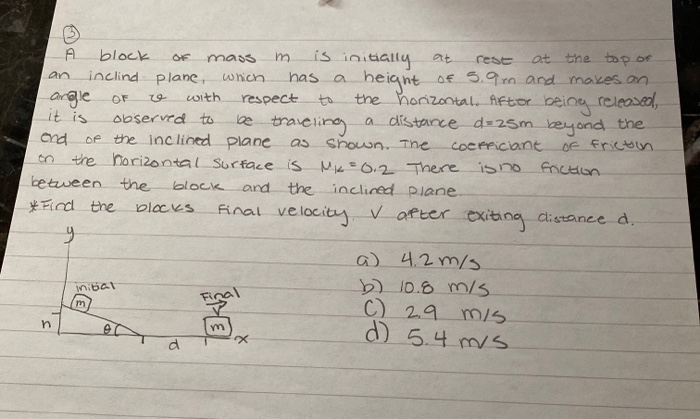 3
A block of mass m is initially at rest at the top of
an inclind plane, which has a height of 5.9m and makes an
angle of θ with respect to the horizontal. After being released,
it is observed to be traveling a distance d=25m beyond the
end of the inclined plane as shown. The coefficiant of friction
on the horizontal surface is Mk=0.2 There is no friction
between the block and the inclined plane
*Find the blocks final velocity, V after exiting distance d.
y
a) 4.2 m/s
inital
b) 10.8 m/s
m
Final
c) 2.9 m/s
V
h
θ
m
d) 5.4 m/s
d
x